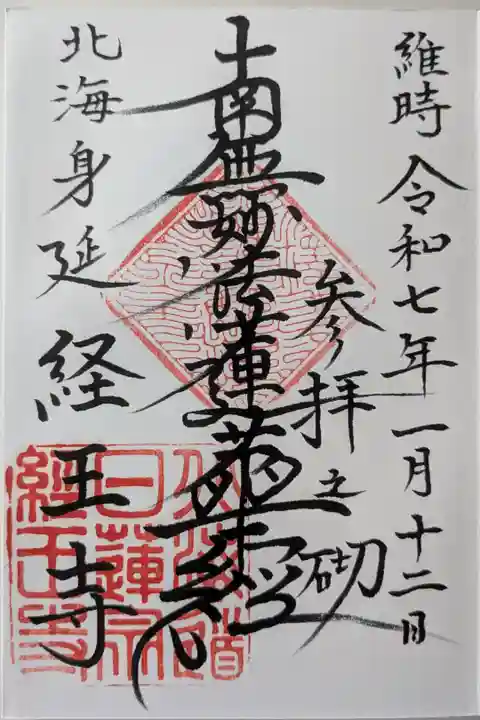 維時 令和七年一月十二日
参拝之砌
南無妙法蓮華経
北海身延
経王寺
日蓮宗
經王寺